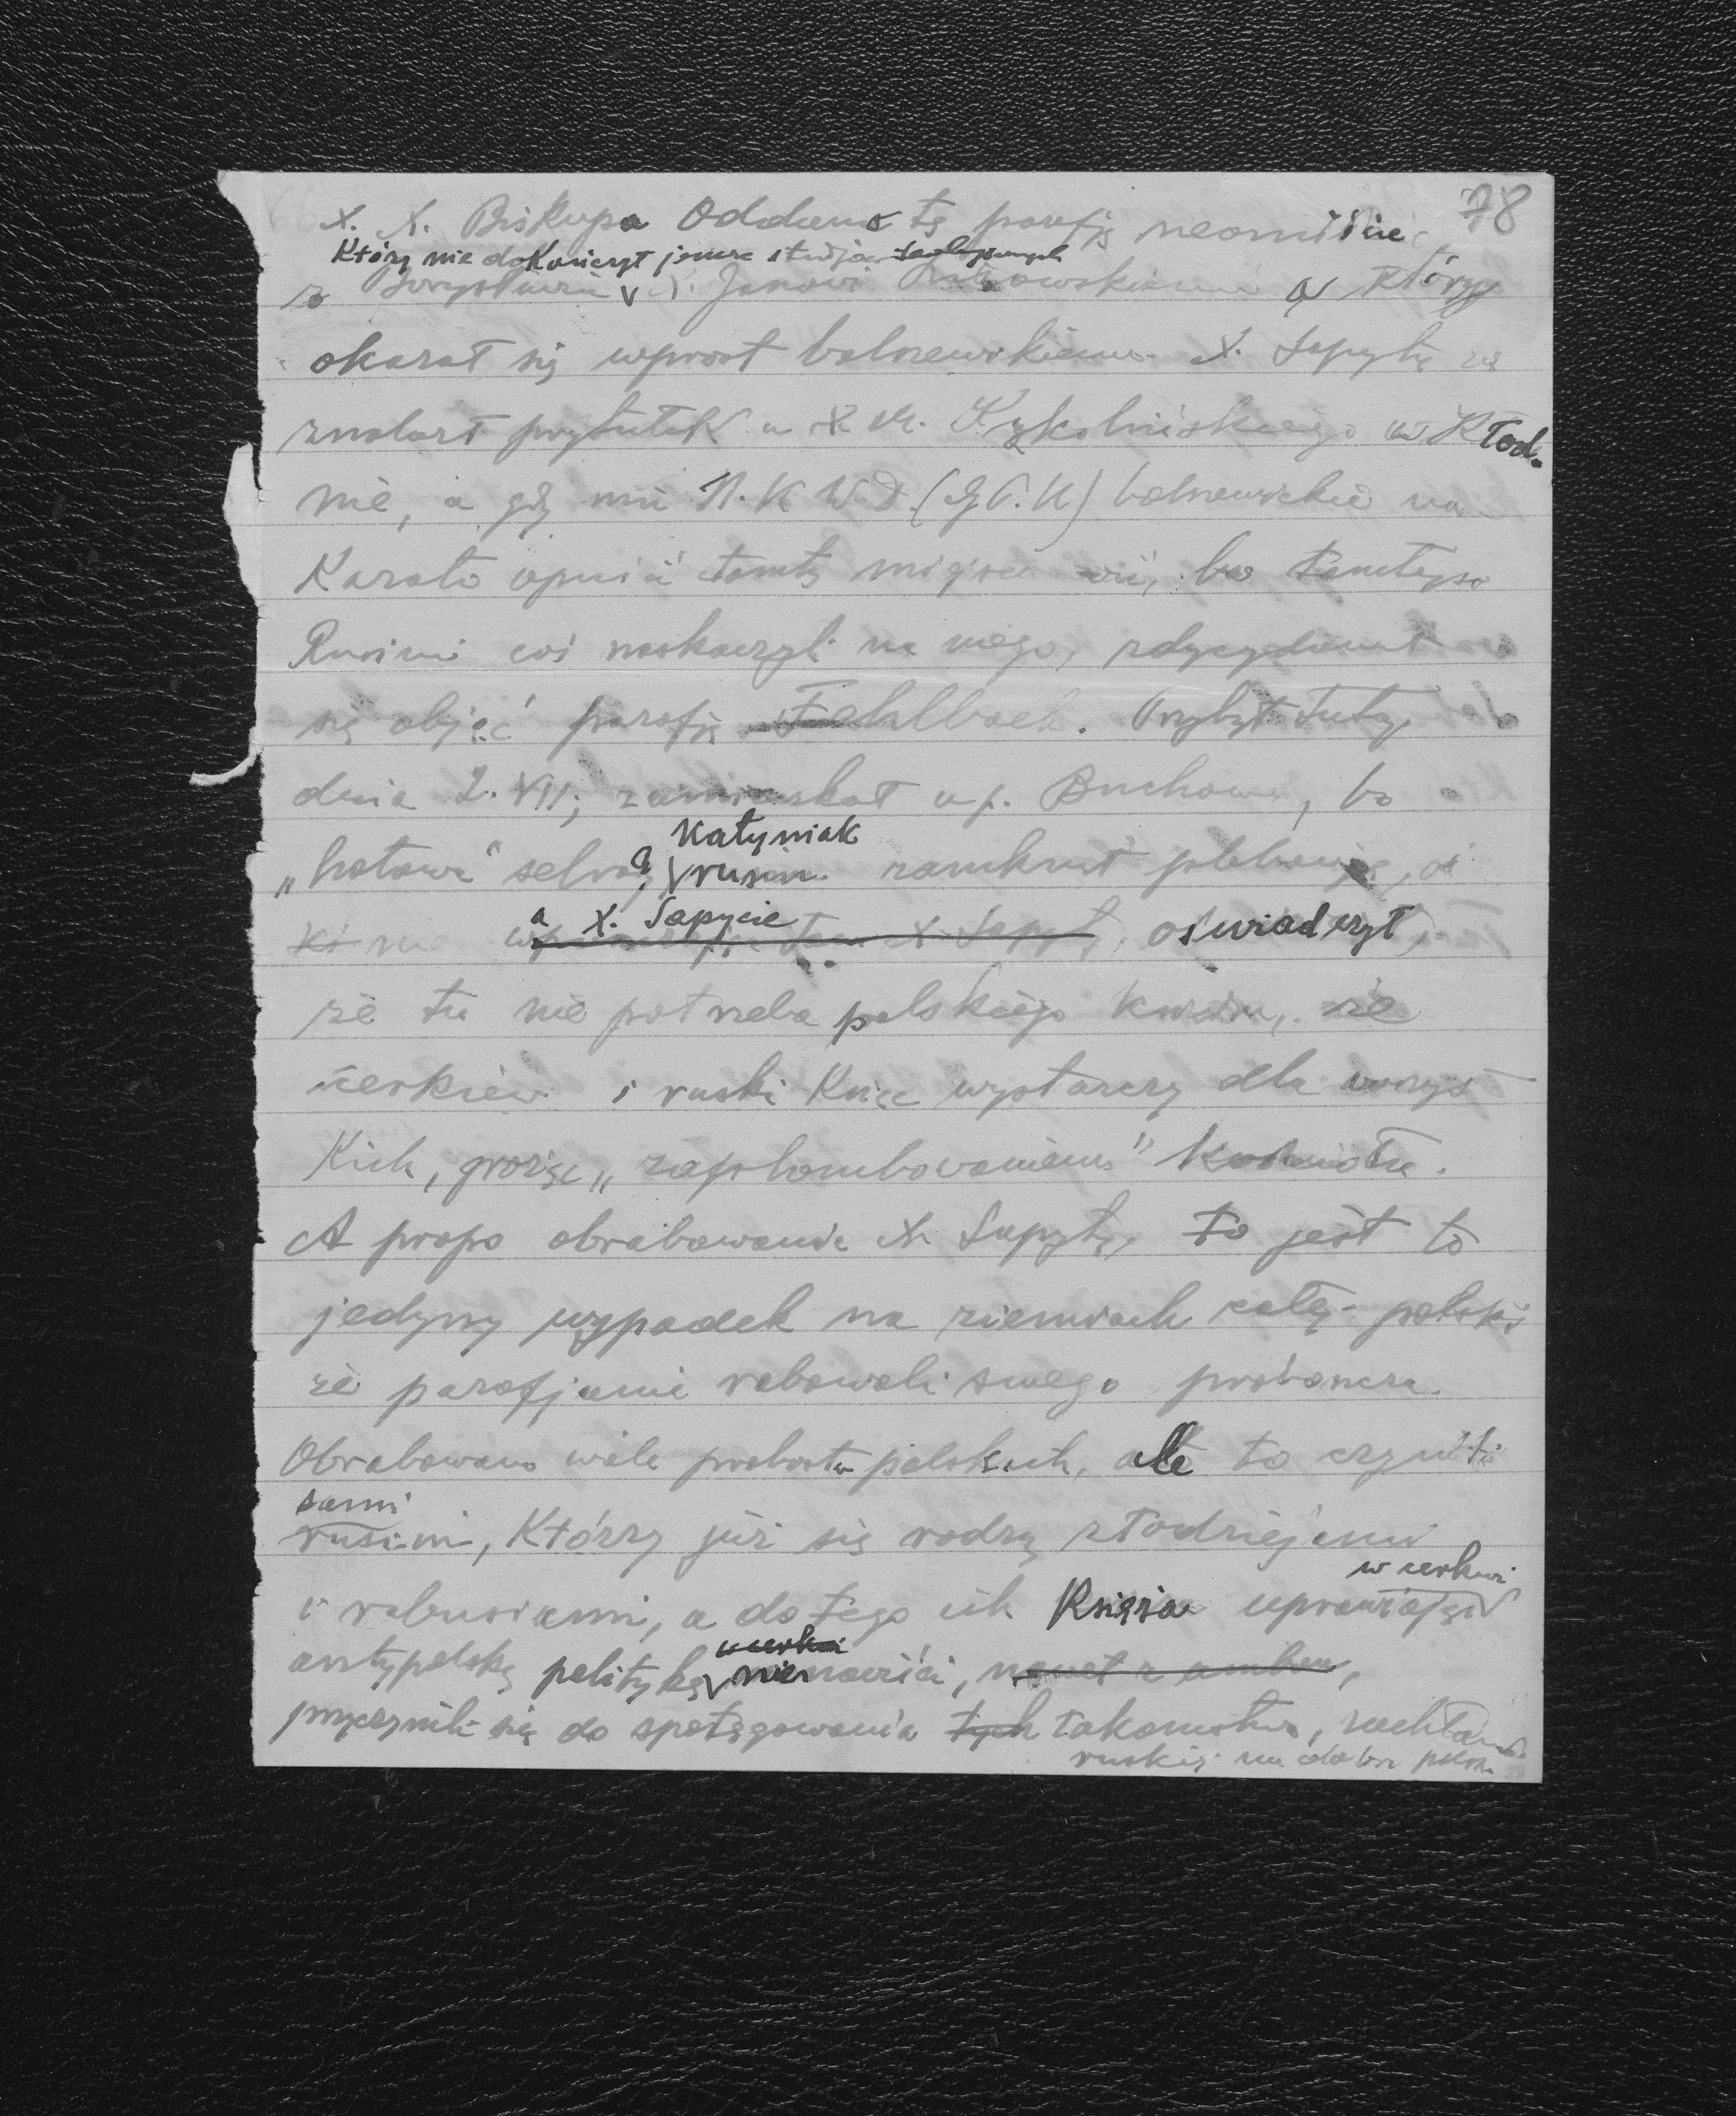 78
X. X. Biskupa Oddano tę parafję neomiście
który nie dokończył jeszcze studja teologicznych
z Borysławia X. Janowi a który
okazał się wprost bolszewikiem. X. Sapyta zaś
znalazł przytułek u X. Kr. w Kłod-
nie, a gdy mu N.K.W.D (G.P.U) bolszewickie na-
kazało opuścić tamtą miejscowość, bo tamtejsi
Rusini coś naskarżyli na niego, zdecydował
się objąć parafję Fehlbach. Przybył tutaj
dnia 2. VII; zamieszkał u p. Buchowa, bo
„hołowa" selrady katyniak rusin zamknął plebanję, a
X. Sapycie oświadczył,
że tu nie potrzeba polskiego księdza, że
cerkiew i ruski ksiądz wystarczy dla wszyst-
kich, grożąc „zaplombowaniem" kościoła.
A propo obrabowania X. Sapyty, to jest to
jedyny wypadek na ziemiach całej polski
że parafjanie rabowali swego proboszcza.
Obrabowano wiele probostw polskich, ale to czynili
sami rusini, którzy już się rodzą złodziejami
i rabusiami, a do tego ich księża uprawiając w cerkwi
antypolską politykę nienawiści, nawet z ambon,
przyczynili się do spotęgowania tych łakomstwa, zachłanności
ruskiej na dobra polskie